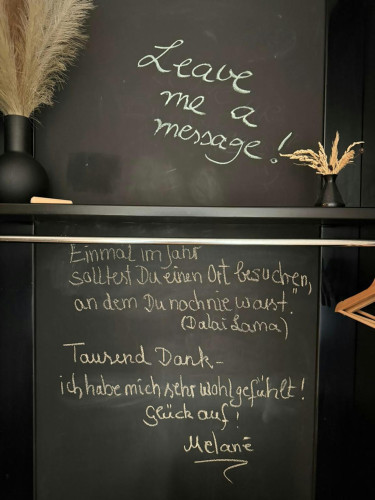 Leave
me a
message!
Einmal im Jahr
solltest Du einen Ort besuchen,
an dem Du noch nie warst."
(Dalai Lama)
Tausend Dank-
ich habe mich sehr wohl gefühlt!
Glück auf!
Melanè